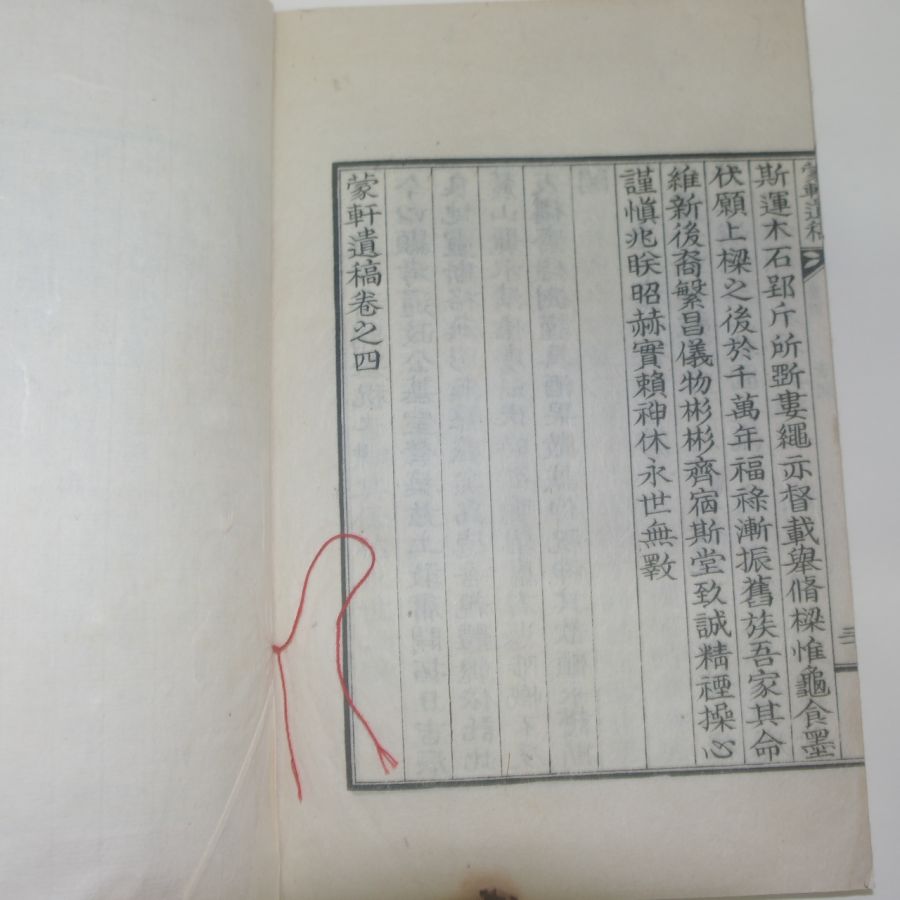 蒙軒遺稿
三
斯運木石郢斤所斲婁繩亦督載舉脩樑惟龜食墨
伏願上樑之後於千萬年福祿漸振舊族吾家其命
維新後裔繁昌儀物彬彬齊宿斯堂致誠精禋操心
謹愼兆眹昭赫實賴神休永世無斁
蒙軒遺稿卷之四